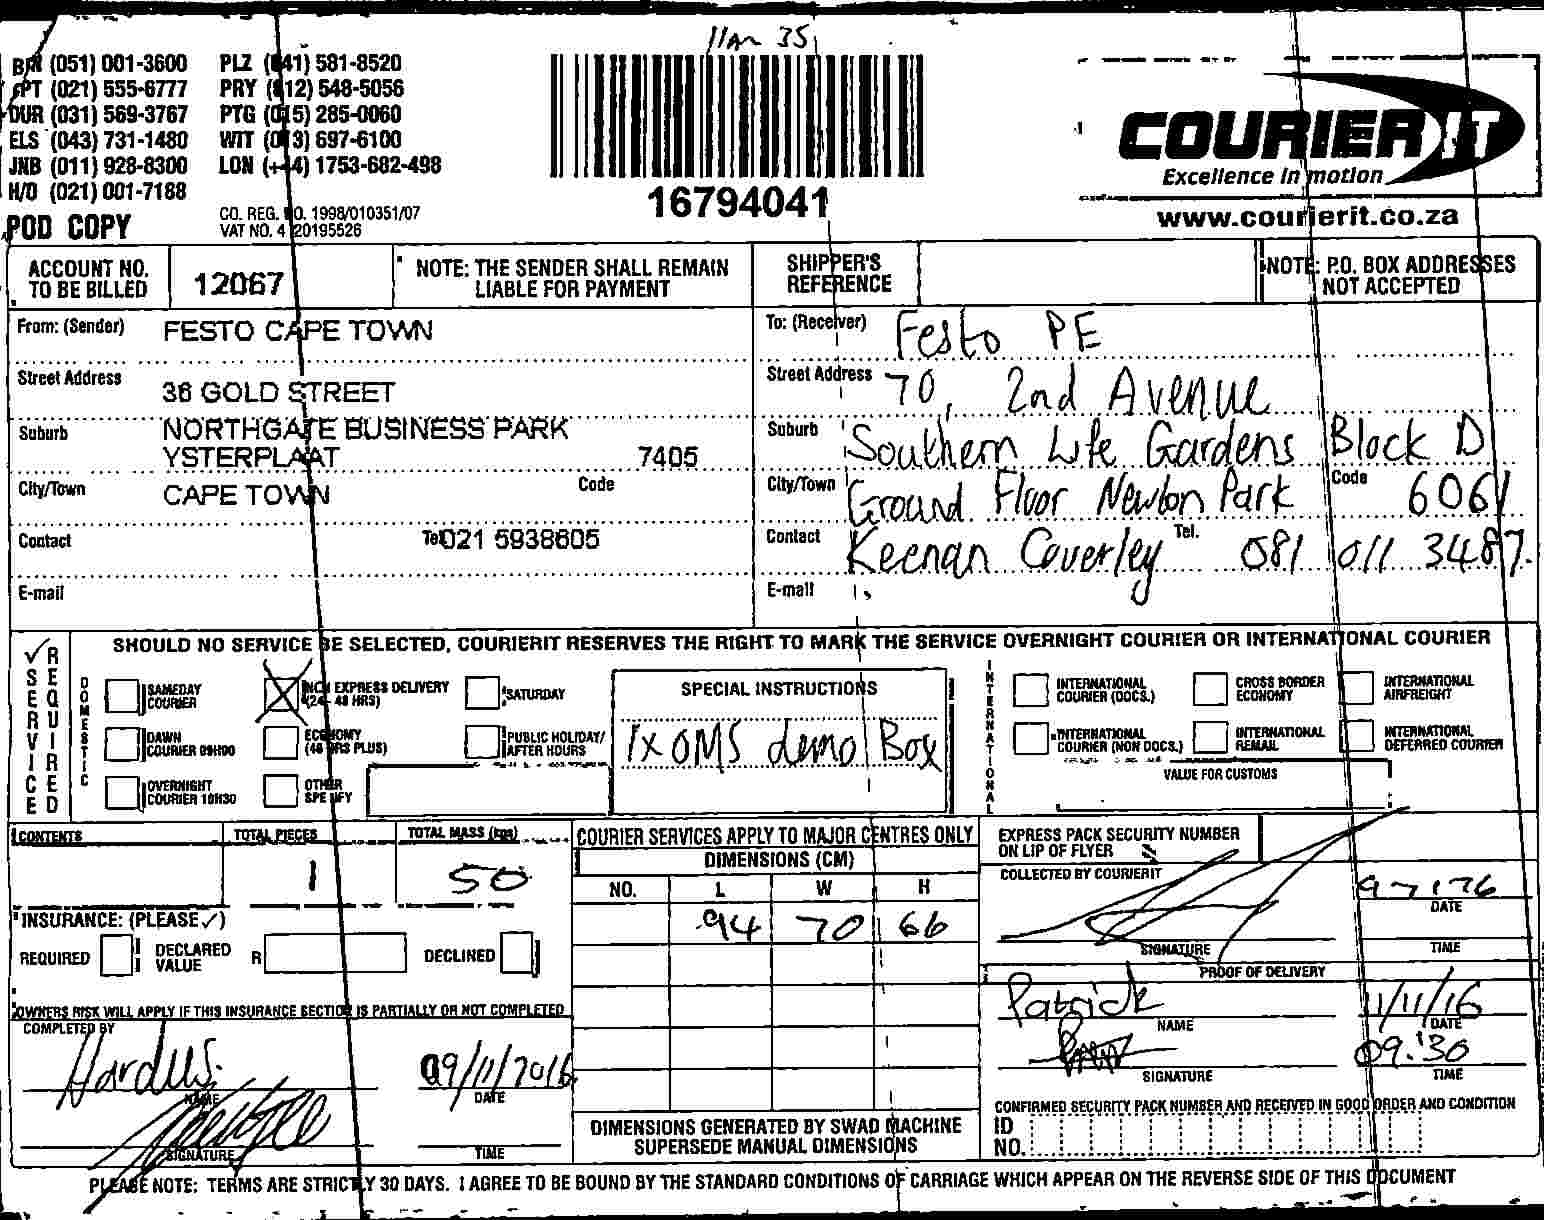 11Am 35
BFN (051) 001-3600 PLZ (041) 581-8520
CPT (021) 555-6777 PRY (012) 548-5056
DUR (031) 569-3767 PTG (015) 285-0060
ELS (043) 731-1480 WIT (013) 697-6100
JNB (011) 928-8300 LON (+44) 1753-682-498
H/O (021) 001-7188
POD COPY
CO. REG. NO. 1998/010351/07
VAT NO. 4 20195526
16794041
COURIER IT
Excellence in motion
www.courierit.co.za
ACCOUNT NO. TO BE BILLED 12067
NOTE: THE SENDER SHALL REMAIN LIABLE FOR PAYMENT
SHIPPER'S REFERENCE
NOTE: P.O. BOX ADDRESSES NOT ACCEPTED
From: (Sender) FESTO CAPE TOWN
Street Address 36 GOLD STREET
Suburb NORTHGATE BUSINESS PARK
YSTERPLAAT 7405
City/Town CAPE TOWN Code
Contact Tel 021 5938605
E-mail
To: (Receiver) Festo PE
Street Address 70, 2nd Avenue
Suburb Southern Life Gardens Block D
City/Town Ground Floor Newton Park Code 6061
Contact Keenan Coverley Tel. 081 011 3487
E-mail
SERVICE REQUIRED
SHOULD NO SERVICE BE SELECTED, COURIERIT RESERVES THE RIGHT TO MARK THE SERVICE OVERNIGHT COURIER OR INTERNATIONAL COURIER
DOMESTIC
SAMEDAY COURIER
EXPRESS DELIVERY (24 - 48 HRS)
SATURDAY
DAWN COURIER 09H00
ECONOMY (48 HRS PLUS)
PUBLIC HOLIDAY/ AFTER HOURS
OVERNIGHT COURIER 10H30
OTHER SPECIFY
SPECIAL INSTRUCTIONS
1 x OMS demo Box
INTERNATIONAL
INTERNATIONAL COURIER (DOCS.)
CROSS BORDER ECONOMY
INTERNATIONAL AIRFREIGHT
INTERNATIONAL COURIER (NON DOCS.)
INTERNATIONAL REMAIL
INTERNATIONAL DEFERRED COURIER
VALUE FOR CUSTOMS
CONTENTS
TOTAL PIECES 1
TOTAL MASS (kgs) 50
INSURANCE: (PLEASE ✓)
REQUIRED DECLARED VALUE R DECLINED
OWNERS RISK WILL APPLY IF THIS INSURANCE SECTION IS PARTIALLY OR NOT COMPLETED
COMPLETED BY
Hardus 09/11/2016
NAME DATE
SIGNATURE TIME
COURIER SERVICES APPLY TO MAJOR CENTRES ONLY
DIMENSIONS (CM)
NO. L W H
94 70 66
DIMENSIONS GENERATED BY SWAD MACHINE SUPERSEDE MANUAL DIMENSIONS
EXPRESS PACK SECURITY NUMBER ON LIP OF FLYER
COLLECTED BY COURIERIT
DATE
SIGNATURE TIME
PROOF OF DELIVERY
Patrick 11/11/16
NAME DATE
09:30
SIGNATURE TIME
CONFIRMED SECURITY PACK NUMBER AND RECEIVED IN GOOD ORDER AND CONDITION
ID NO.
PLEASE NOTE: TERMS ARE STRICTLY 30 DAYS. I AGREE TO BE BOUND BY THE STANDARD CONDITIONS OF CARRIAGE WHICH APPEAR ON THE REVERSE SIDE OF THIS DOCUMENT